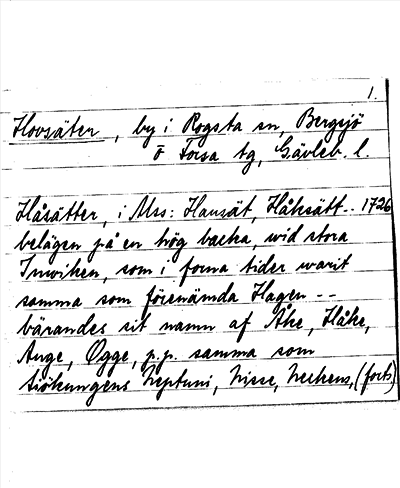 1.
Hovsäter, by i Rogsta sn, Bergsjö
o Forsa tg, Gävleb. l.
Håsätter, i Mss: Hauzät, Håksätt-- 1726
belägen på en hög backa, wid stora
Inwiken, som i forna tider warit
samma som förenämda Hagen --
bärandes sit namn af Åke, Håke,
Auge, Ögge, p.p. samma som
siökungens Neptuni, Nisse, Neckens, (forts)